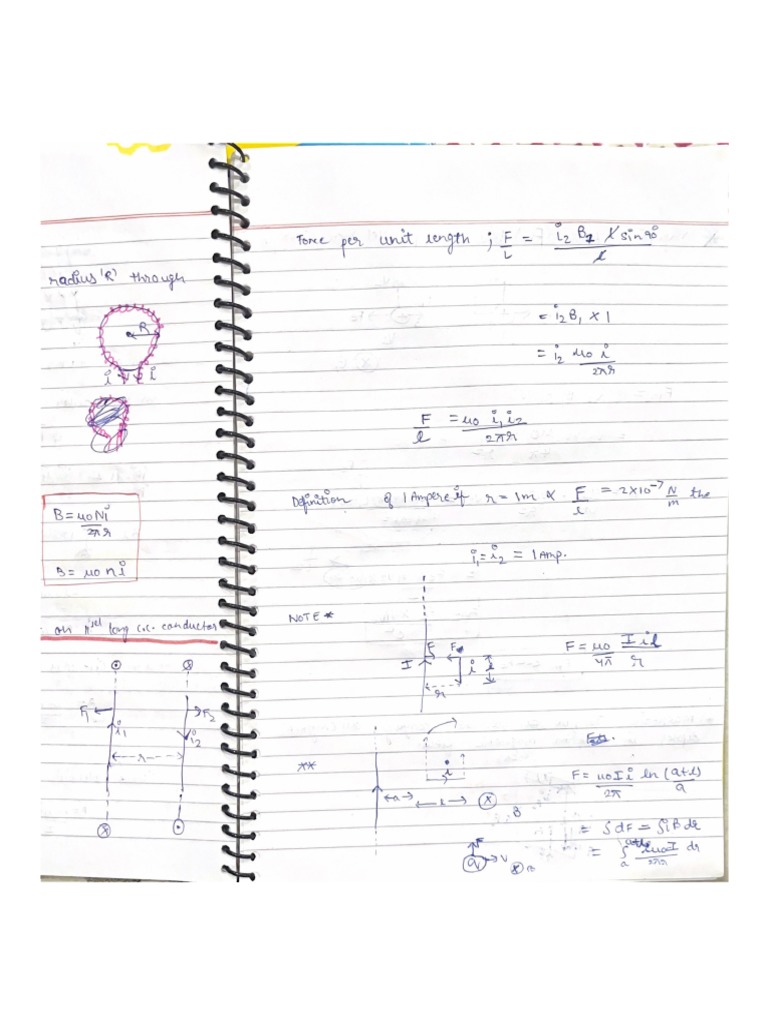 radius 'R' through
R
i i
B = μ₀Ni / 2πr
B = μ₀ n i
on ll^el long c.c. conductor
F₁ F₂
i₁ i₂
r
Force per unit length ; F/L = i₂ B₁ l sin 90 / l
= i₂B₁ × 1
= i₂ μ₀ i / 2πr
F/l = μ₀ i₁ i₂ / 2πr
Definition of 1 Ampere if r = 1m & F/l = 2×10⁻⁷ N/m the
i₁ = i₂ = 1 Amp.
NOTE *
I F i l
r
F = μ₀/4π I i l / r
**
a l ⊗ B
F = μ₀ I i / 2π ln (a+l)/a
= ∫dF = ∫iB dr
= ∫ₐ μ₀I / 2πr dr
q V ⊗ B